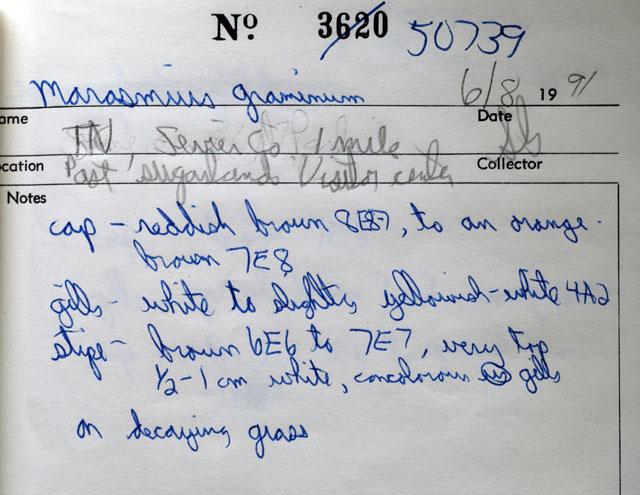 Nº 3620 50739
Marasmius graminum 6/8 19 91
ame Date
TN, Sevier Co 1 mile
ocation Past Sugarlands Visitor center Collector
Notes
cap - reddish brown 8E8-7, to an orange-
brown 7E8
gills - white to slightly yellowish-white 4A2
stipe - brown 6E6 to 7E7, very top
1/2-1 cm white, concolorous w gills
on decaying grass